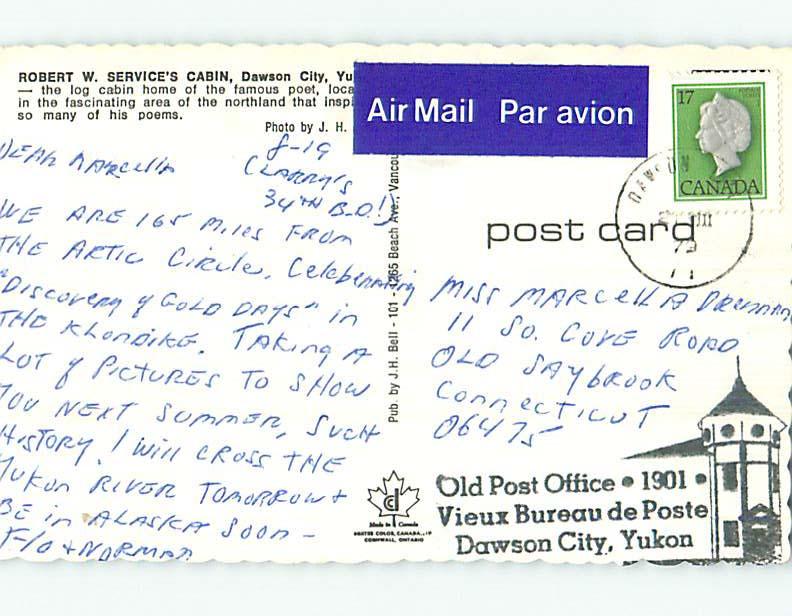 ROBERT W. SERVICE'S CABIN, Dawson City, Yu
— the log cabin home of the famous poet, loca
in the fascinating area of the northland that inspi
so many of his poems.
Photo by J. H.
Air Mail Par avion
17
CANADA
DAWSON
79
post card
8-19
CLARRY'S
34TH B.D.!)
DEAR MARCELLA
WE ARE 165 MILES FROM
THE ARTIC CIRCLE. CELEBRATING
"DISCOVERY OF GOLD DAYS" IN
THE KLONDIKE. TAKING A
LOT OF PICTURES TO SHOW
YOU NEXT SUMMER, SUCH
HISTORY! WILL CROSS THE
YUKON RIVER TOMORROW +
BE IN ALASKA SOON —
FLO + NORMAN
Pub. by J.H. Bell - 101 - 1265 Beach Ave., Vancou
MISS MARCELLA
11 SO. COVE ROAD
OLD SAYBROOK
CONNECTICUT
06475
Made in Canada
CORNWALL, ONTARIO
Old Post Office • 1901 •
Vieux Bureau de Poste
Dawson City, Yukon